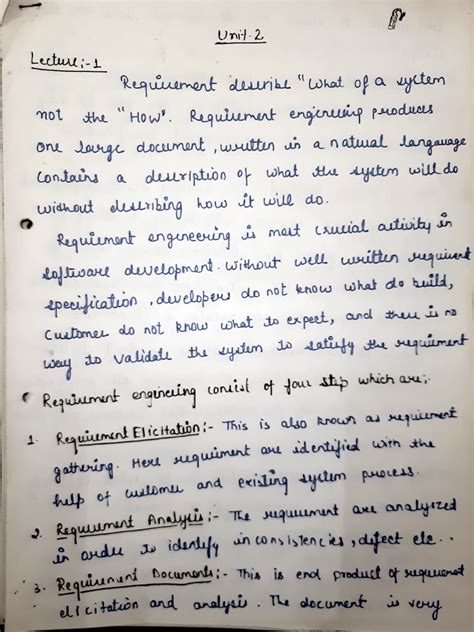 Unit-2
Lecture:-1
Requirement describe "What of a system
not the "HOW". Requirement engineering produces
one large document, written in a natural language
contains a description of what the system will do
without describing how it will do.
Requirement engineering is most crucial activity in
software development. Without well written requirement
specification, developers do not know what do build,
Customer do not know what to expect, and there is no
way to validate the system to satisfy the requirement
Requirement engineering consist of four step which are:-
1. Requirement Elicitation:- This is also known as requirement
gathering. Here requirement are identified with the
help of customer and existing system process.
2. Requirement Analysis:- The requirement are analyized
in order to identify inconsistencies, defect etc..
3. Requirement Documents:- This is end product of requirement
elicitation and analysis. The document is very